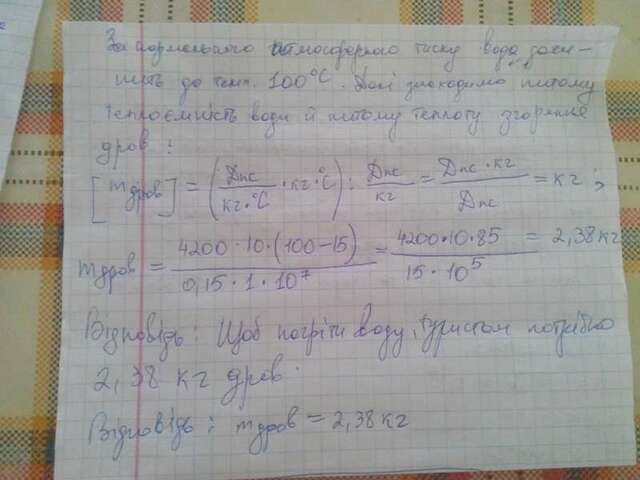 За нормального атмосферного тиску вода заки-
пить до темп. 100°C. Далі знаходимо питому
теплоємність води й питому теплоту згоряння
дров:
[m дров] = (Дж/кг·°C · кг · °C) : Дж/кг = Дж·кг/Дж = кг;
m дров = 4200·10·(100-15)/0,15·1·10⁷ = 4200·10·85/15·10⁵ = 2,38 кг
Відповідь: Щоб погріти воду, туристам потрібно
2,38 кг дров.
Відповідь: m дров = 2,38 кг